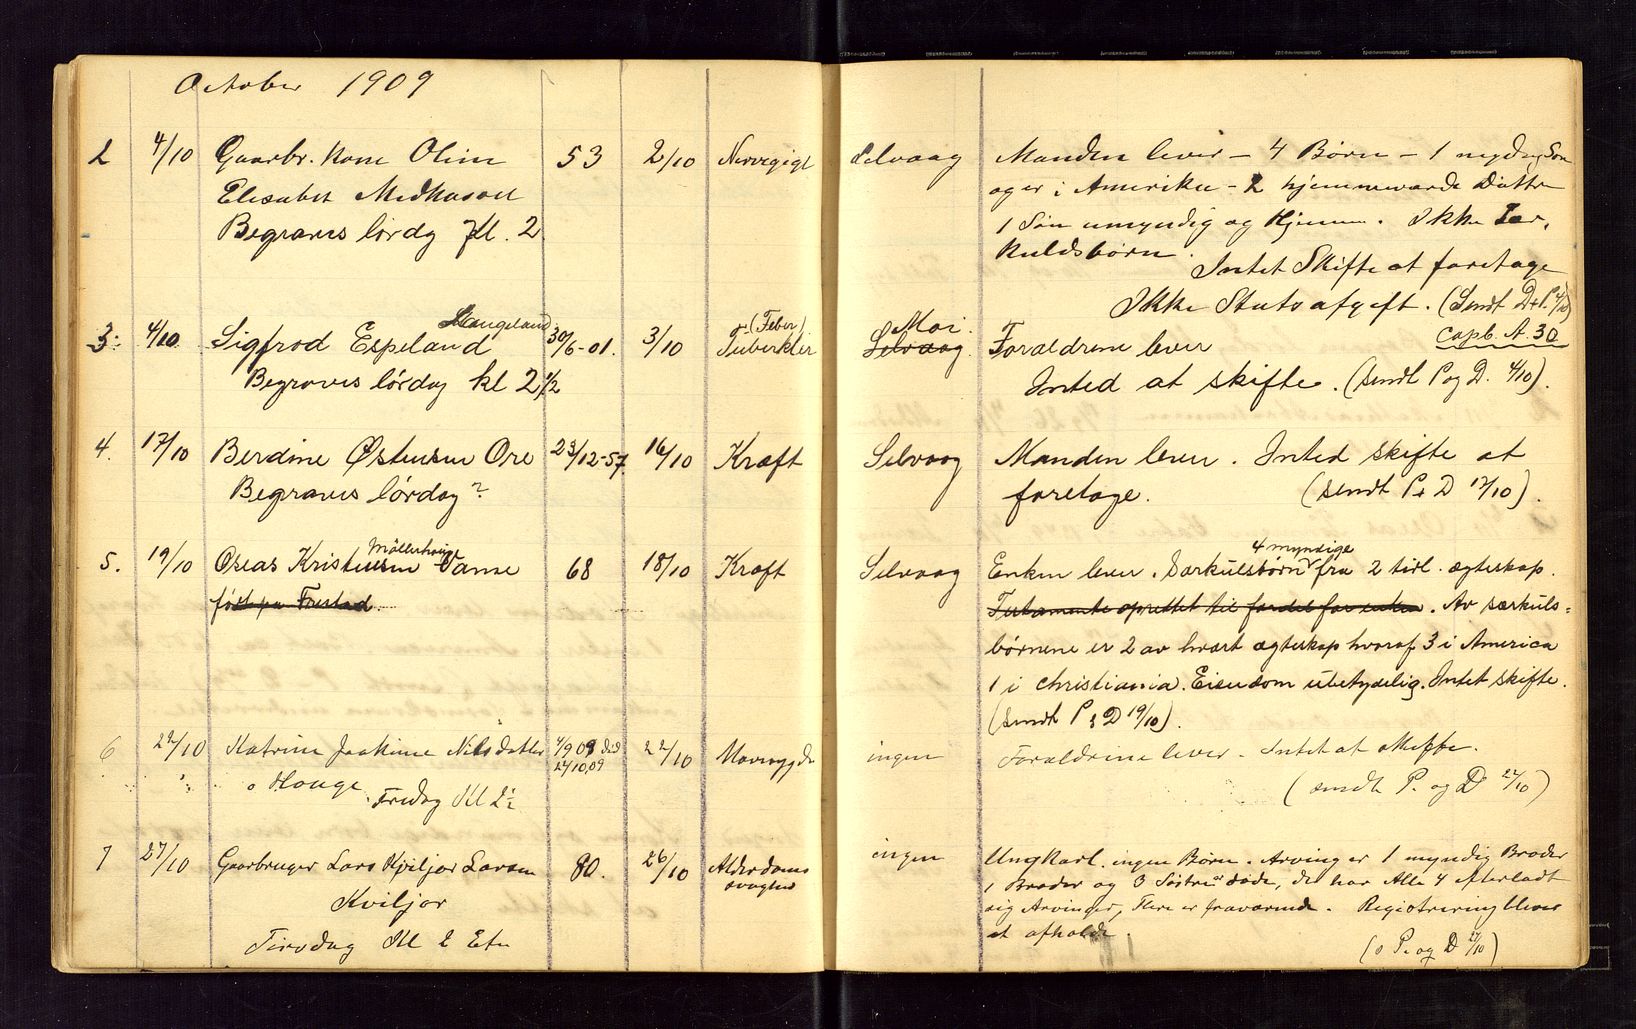 October 1909
2 4/10 Gaarbr. Kone Oline 53 2/10 Nervegigt Selvaag Manden lever - 4 Børn - 1 myndig Søn
Elisabet Medhasall og er i Amerika - 2 hjemmeværende Døttre
Begraves lørdag Kl. 2 1 Søn umyndig og Hjemme. Ikke Sær-
kuldsbørn. Intet Skifte at foretage
Ikke Statsafgift. (Sendt D+P. 4/10)
capt. A. 30
3: 4/10 Sigfrod Espeland Mangeland 30/6-01. 3/10 Tuberkler (Feber) Selvaag Moi. Foraeldrene lever
Begraves lørdag kl 2 1/2 Inted at skifte. (sendt P og D. 4/10).
4. 17/10 Berdine Østensen Ore 23/12-57. 16/10 Kræft Selvaag Manden lever. Inted skifte at
Begraves lørdag? foretage. (sendt P + D 17/10).
5. 19/10 Oseas Kristensen Møllerhauge Vanse 68 18/10 Kræft Selvaag Enken lever. Særkulsbørn 4 myndige fra 2 tidl. ægteskap.
født paa Frestad. Testamente oprettet til fordel for enken. Av særkuls-
børnene er 2 av hvært ægteskap hvoraf 3 i America
1 i Christiania. Eiendom ubetydelig. Intet skifte.
(sendt P & D 19/10).
6 22/10 Katrine Joakime Nilsdatter 4/9 09 død 22/10,09 22/10 Mavesygd. ingen Foraldrene lever. Intet at skifte.
Hauge Fredag Kl 2 1/2 (sendt P. og D 22/10)
7 27/10 Gaarbruger Lars Kviljor Larsen 80. 26/10 Alderdoms ingen Ungkarl. ingen Børn. Arving er 1 myndig Broder
svaghed 1 Broder og 3 Søstre er døde, de har Alle 4 efterladt
Kviljor sig Arvinger, Flere er fraværende. Registrering bliver
Tirsdag Kl 2 Etm at afholde.
(s P. og D 27/10)